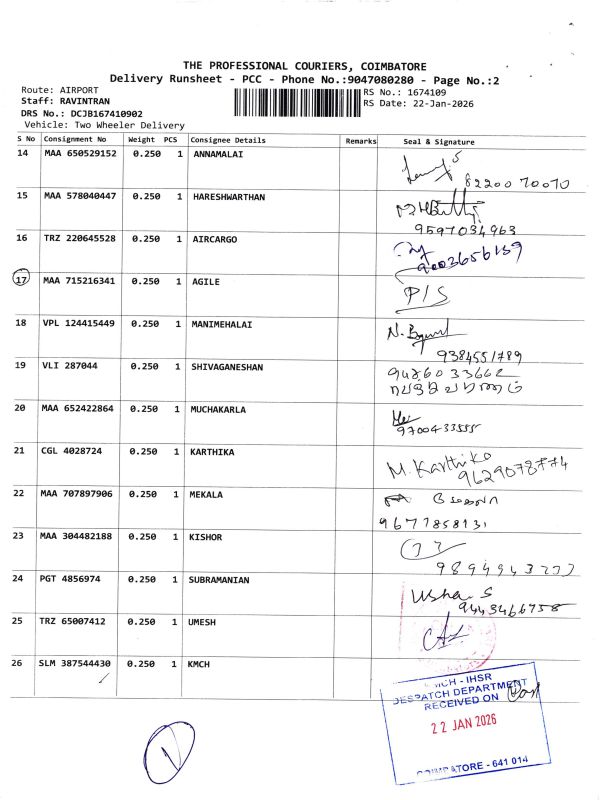 THE PROFESSIONAL COURIERS, COIMBATORE
Delivery Runsheet - PCC - Phone No.:9047080280 - Page No.:2
Route: AIRPORT
Staff: RAVINTRAN
DRS No.: DCJB167410902
Vehicle: Two Wheeler Delivery
RS No.: 1674109
RS Date: 22-Jan-2026
S No Consignment No Weight PCS Consignee Details Remarks Seal & Signature
14 MAA 650529152 0.250 1 ANNAMALAI
8220070070
15 MAA 578040447 0.250 1 HARESHWARTHAN
9597034963
16 TRZ 220645528 0.250 1 AIRCARGO
9003656139
17 MAA 715216341 0.250 1 AGILE P/S
18 VPL 124415449 0.250 1 MANIMEHALAI
9384551789
19 VLI 287044 0.250 1 SHIVAGANESHAN
20 MAA 652422864 0.250 1 MUCHAKARLA
9700433555
21 CGL 4028724 0.250 1 KARTHIKA M. Karthika
9629078774
22 MAA 707897906 0.250 1 MEKALA மேகலா
9677858131
23 MAA 304482188 0.250 1 KISHOR
24 PGT 4856974 0.250 1 SUBRAMANIAN Usha S
9443466758
25 TRZ 65007412 0.250 1 UMESH
26 SLM 387544430 0.250 1 KMCH
KMCH - IHSR
DESPATCH DEPARTMENT
RECEIVED ON
22 JAN 2026
COIMBATORE - 641 014